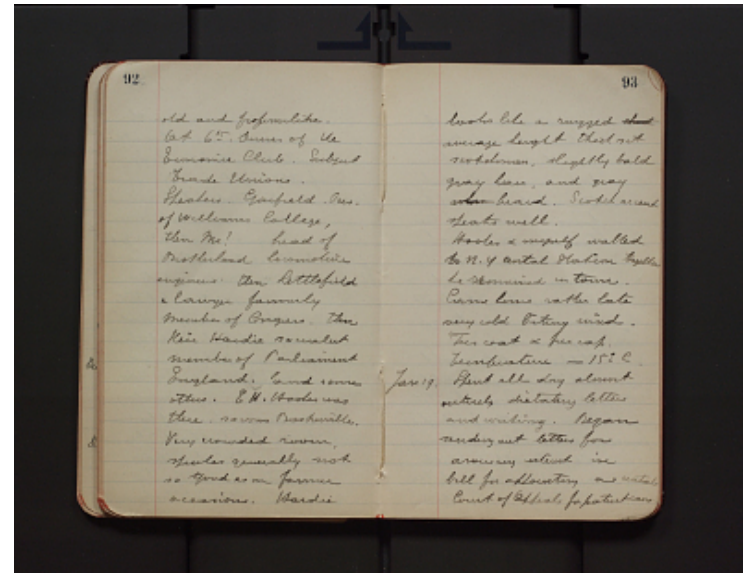 92
old and
At 6th. Dinner of the
Economic Club. Subject
Trade Unions.
Speakers. Garfield Pres.
of Williams College,
then Mc! head of
Brotherland locomotive
engineers. then Littlefield
a lawyer formerly
member of Congress. then
Keir Hardie socialist
member of Parliament
England. and some
others. E.H. Hooker was
there. so was Baskerville.
Very crowded room,
speeches generally not
so good as on former
occasions. Hardie
93
looks like a rugged
average height thick set
scotchman, slightly bald
gray hair, and gray
beard. Scotch accent
speaks well.
Hooker & myself walked
to N.Y Central Station together
he remained in town.
Came home rather late
very cold biting winds.
Fur coat & fur cap.
Temperature — 15° C.
Jan 19. Spent all day almost
entirely dictating letters
and writing. Began
sending out letters for
arousing interest in
bill for
Court of Appeals for patent cases